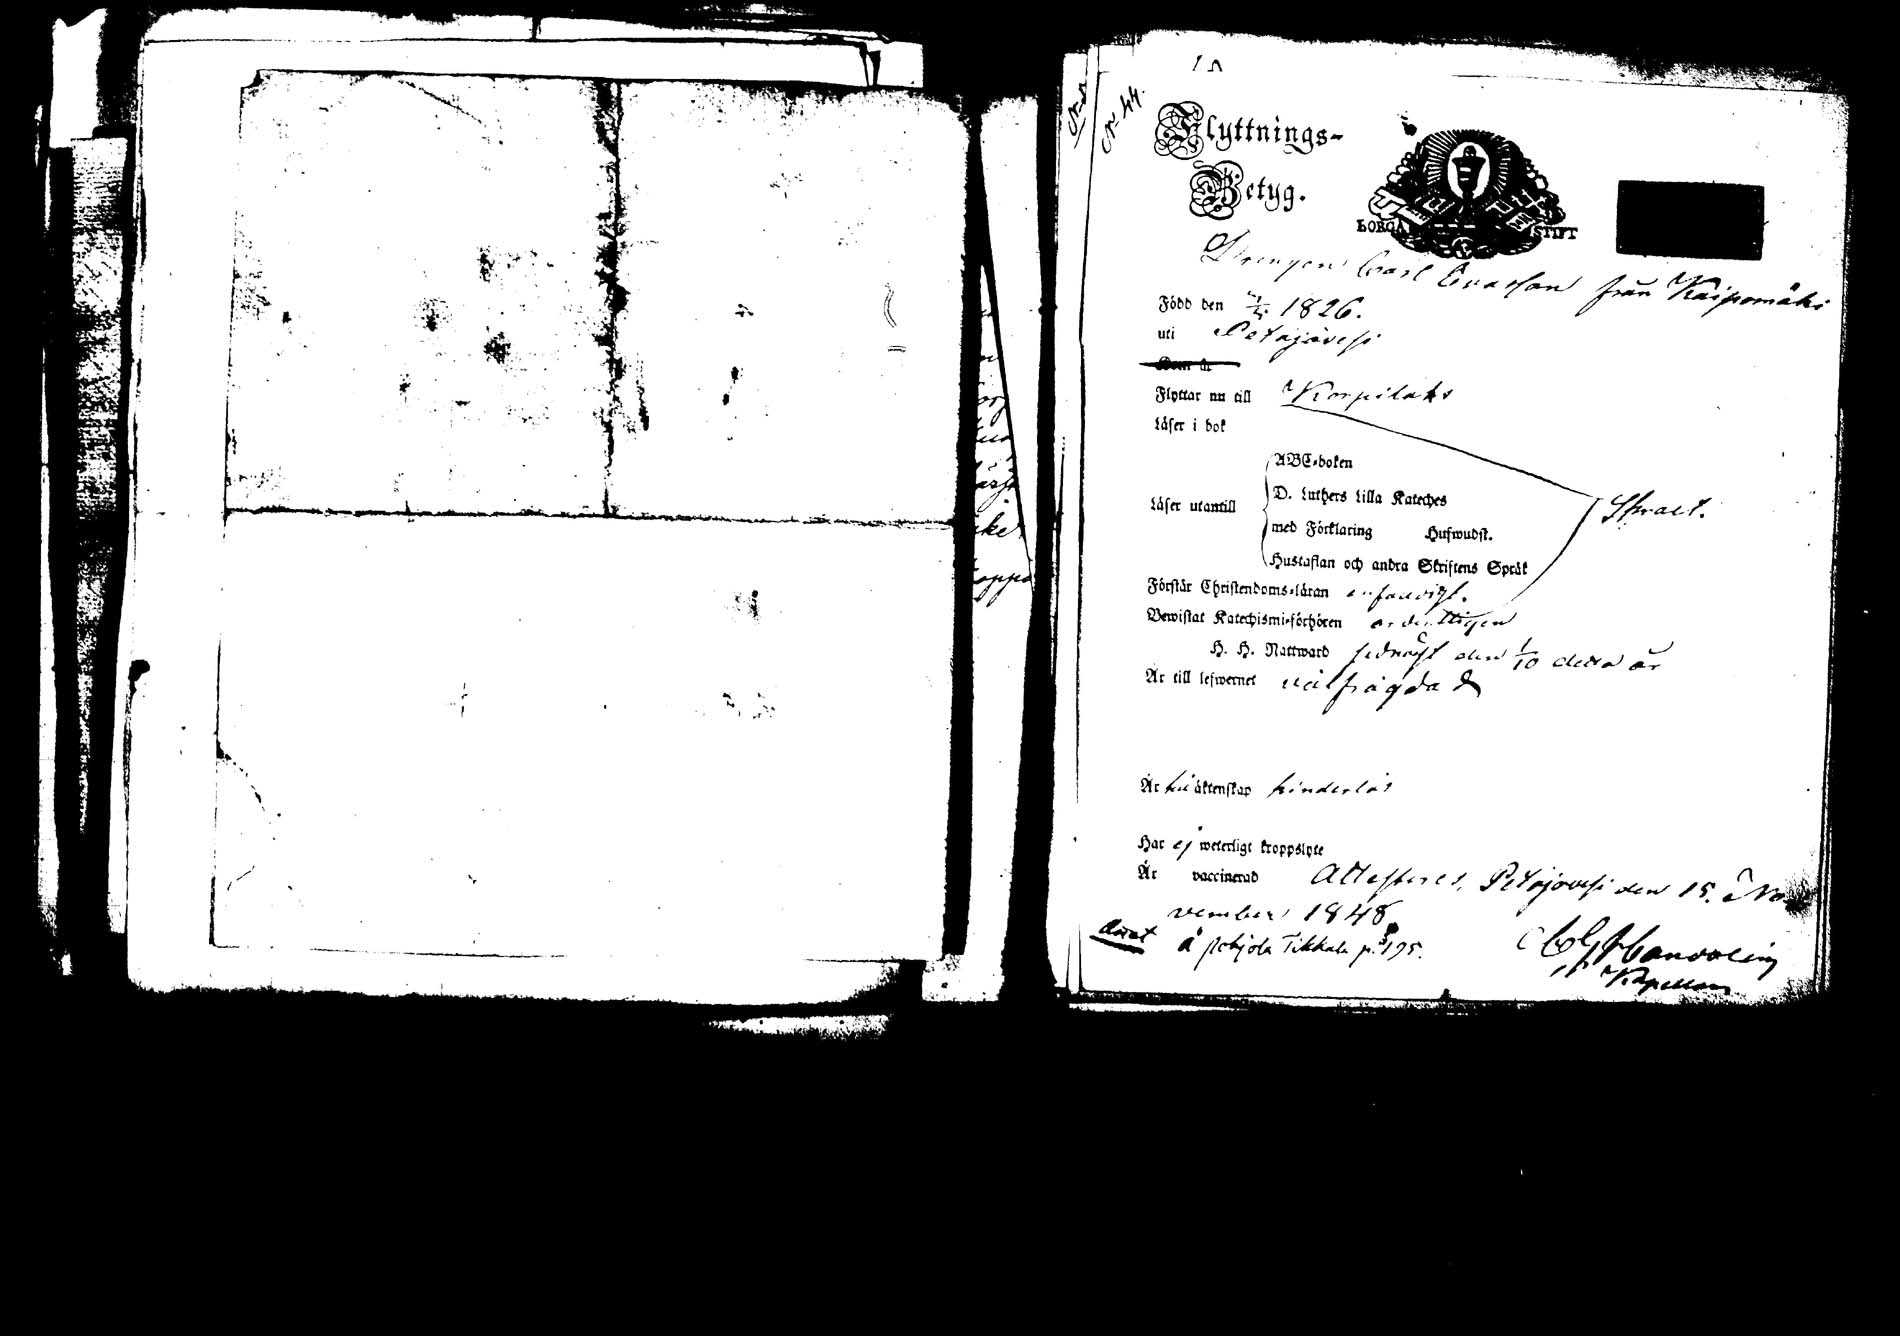 No 44.
Flyttnings-
Betyg.
BORGÅ STIFT
Drengen Carl Evasson från Kaipomäki
Född den 1826.
uti Petäjävesi
Flyttar nu till Korpilaks
Läser i bok
ABC-boken
Läser utantill
D. Luthers Lilla Kateches
med Förklaring Hufwudst.
Hustaflan och andra Skriftens Språk
Svagt.
Förstår Christendoms-läran enfaldigt.
Bewistat Katechismi-förhören ordentligen
H. H. Nattward sednast den 1/10 detta år
Är till lefwernet välfrägdad
Är till äktenskap hinderlös
Har ej weterligt kroppslyte
Är vaccinerad Attesteres, Petäjävesi den 15. No-
vember 1848
å Pohjola Tikkala p. 195.
Kapellan